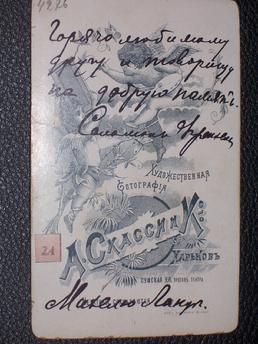 4276
Горячо любимому
другу и товарищу
на добрую память.
Соломон
Художественная
Фотографія
А. Схассіи Ко
Харьковъ
21
Сумская ул. против театра